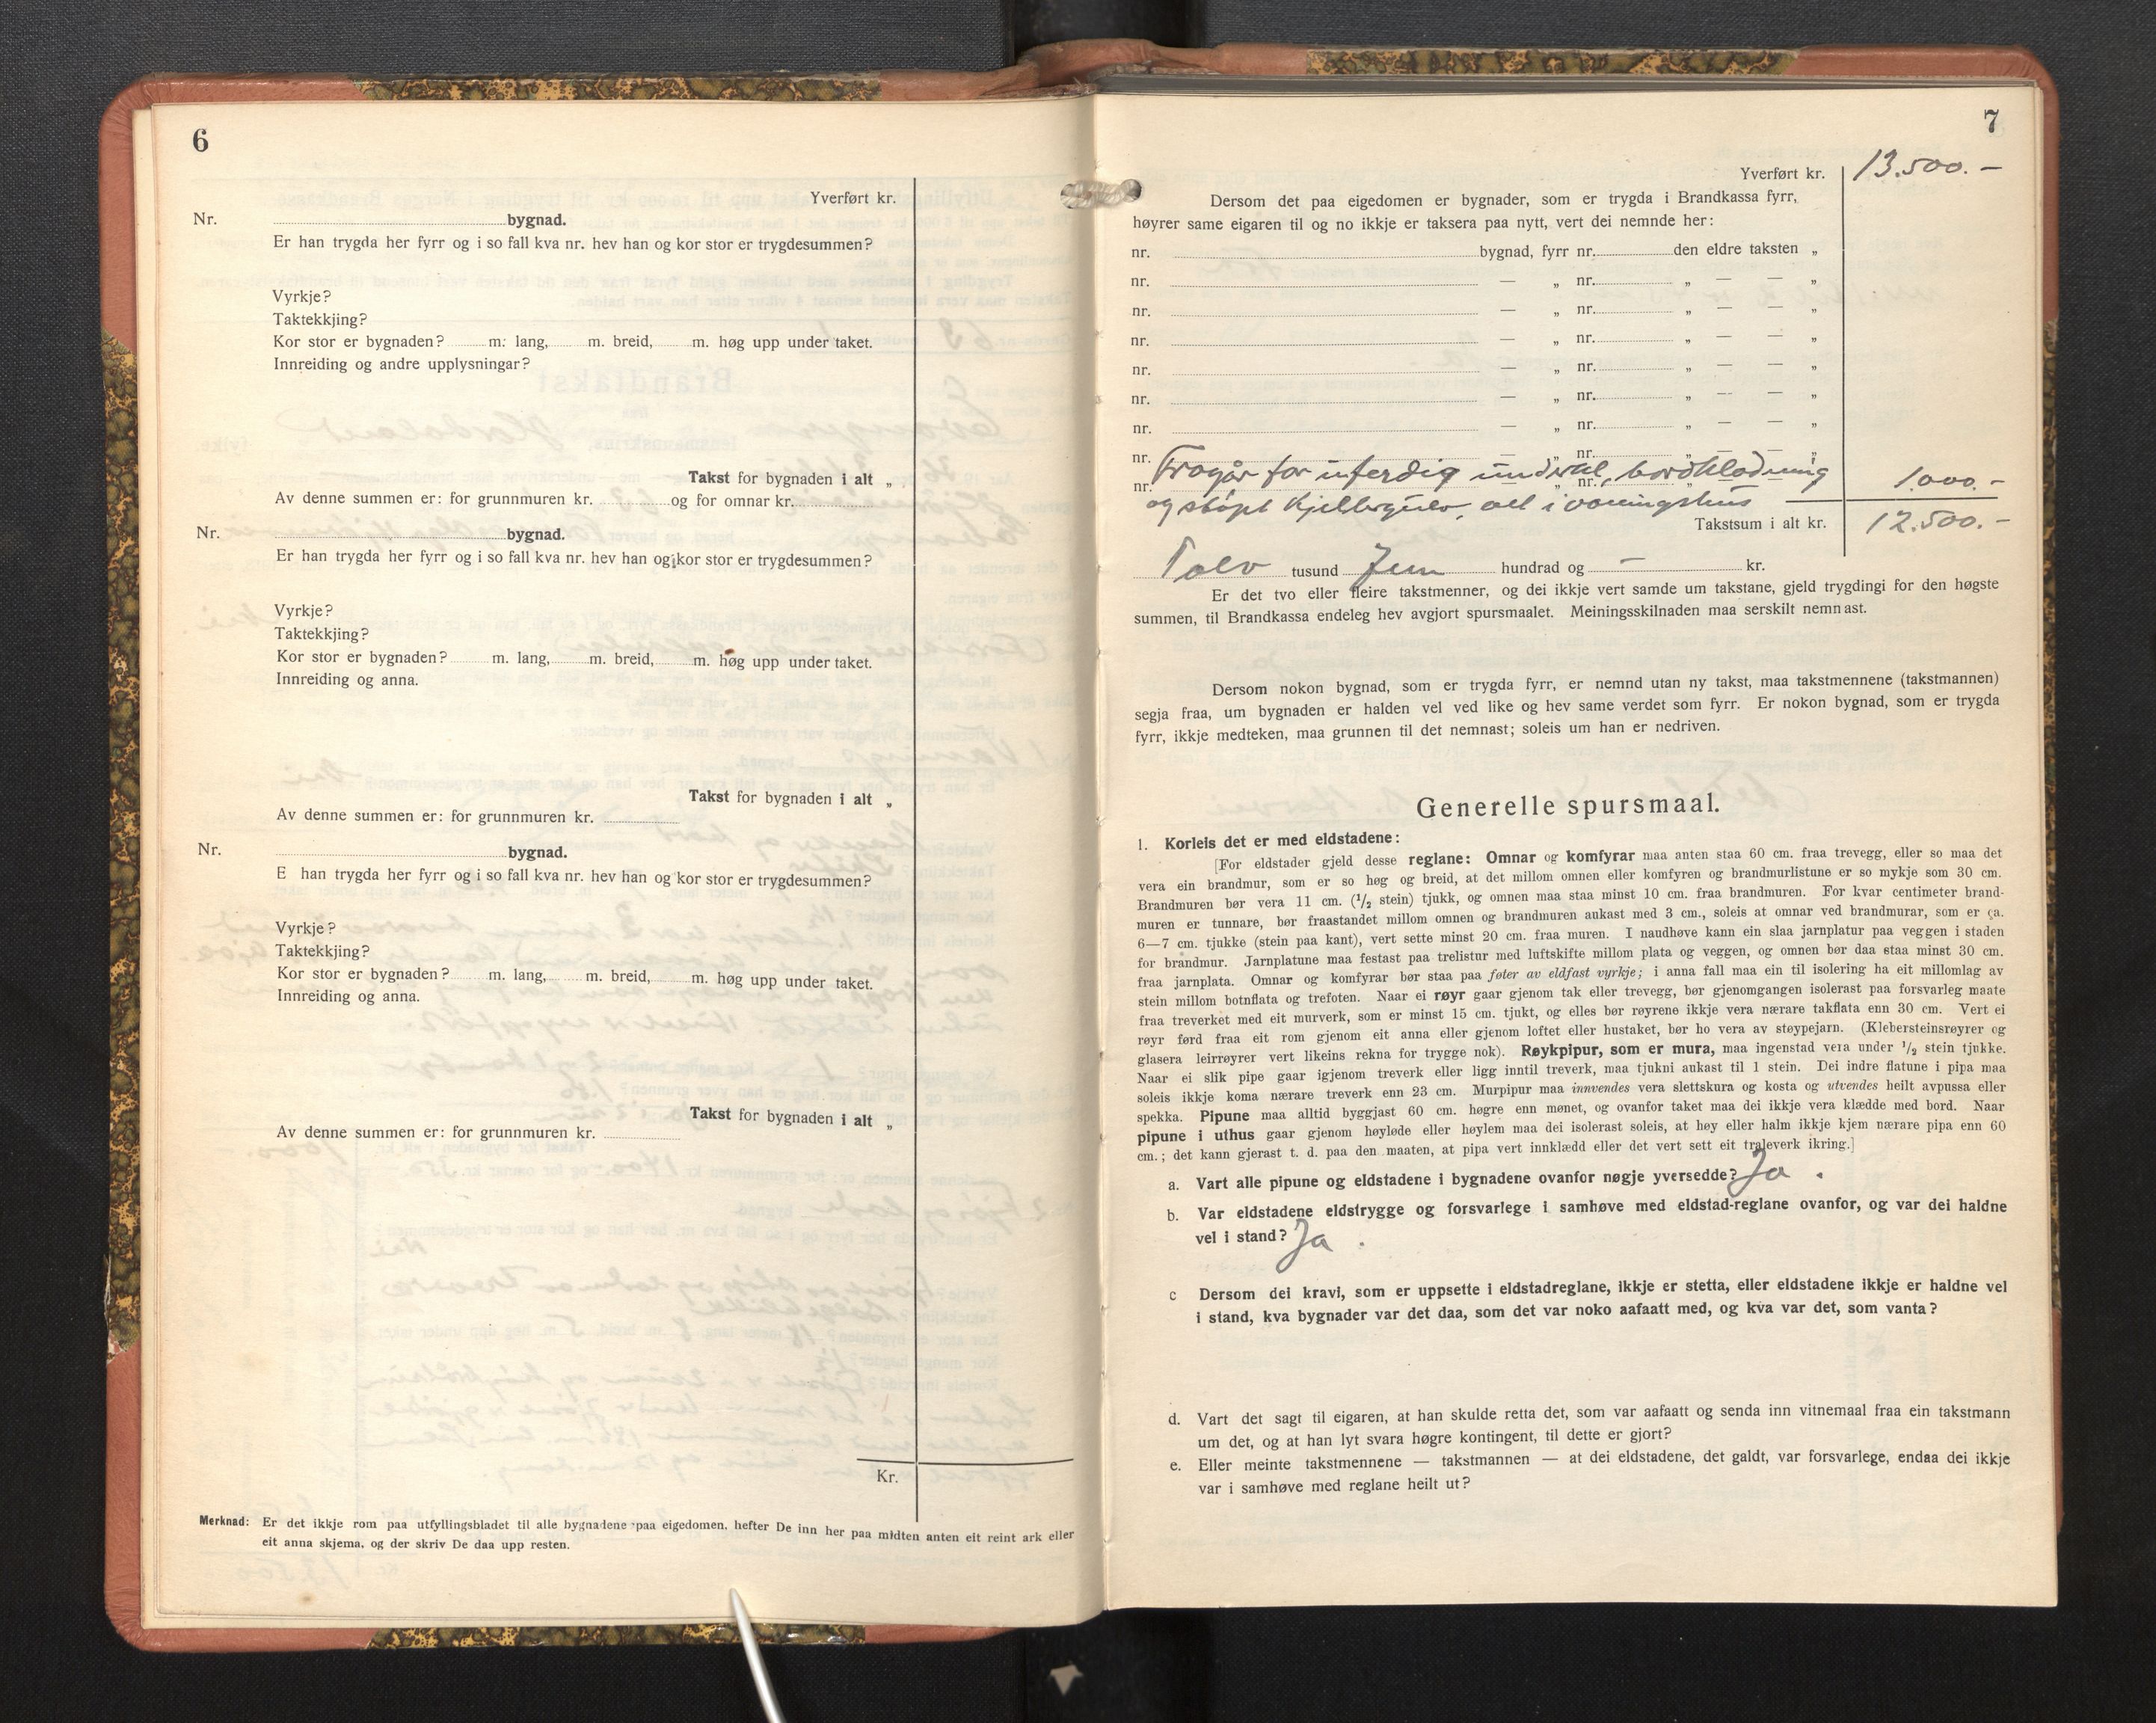 6
Yverført kr.
Nr. bygnad.
Er han trygda her fyrr og i so fall kva nr. hev han og kor stor er trygdesummen?
Vyrkje?
Taktekkjing?
Kor stor er bygnaden? m. lang, m. breid, m. høg upp under taket.
Innreiding og andre upplysningar?
Takst for bygnaden i alt „
Av denne summen er: for grunnmuren kr. og for omnar kr.
Nr. bygnad.
Er han trygda her fyrr og i so fall kva nr. hev han og kor stor er trygdesummen?
Vyrkje?
Taktekkjing?
Kor stor er bygnaden? m. lang, m. breid, m. høg upp under taket.
Innreiding og anna.
Takst for bygnaden i alt „
Av denne summen er: for grunnmuren kr.
Nr. bygnad.
E han trygda her fyrr og i so fall kva nr. hev han og kor stor er trygdesummen?
Vyrkje?
Taktekkjing?
Kor stor er bygnaden? m. lang, m. breid, m. høg upp under taket.
Innreiding og anna.
Takst for bygnaden i alt „
Av denne summen er: for grunnmuren kr.
Kr.
Merknad: Er det ikkje rom paa utfyllingsbladet til alle bygnadene paa eigedomen, hefter De inn her paa midten anten eit reint ark eller
eit anna skjema, og der skriv De daa upp resten.
7
Yverført kr. 13.500.-
Dersom det paa eigedomen er bygnader, som er trygda i Brandkassa fyrr,
høyrer same eigaren til og no ikkje er taksera paa nytt, vert dei nemnde her:
nr. bygnad, fyrr nr. den eldre taksten „
nr. — „ nr. „ — — „
nr. — „ nr. „ — — „
nr. — „ nr. „ — — „
nr. — „ nr. „ — — „
nr. — „ nr. „ — — „
nr. — „ nr. „ — — „
nr. — „ nr. „ — — „
nr. Fragår for uferdig bordkledning 1.000.-
og støpt Kjellergulv, alt i vaaningshus
Takstsum i alt kr. 12.500.-
Tolv tusund Fem hundrad og — kr.
Er det tvo eller fleire takstmenner, og dei ikkje vert samde um takstane, gjeld trygdingi for den høgste
summen, til Brandkassa endeleg hev avgjort spursmaalet. Meiningsskilnaden maa serskilt nemnast.
Dersom nokon bygnad, som er trygda fyrr, er nemnd utan ny takst, maa takstmennene (takstmannen)
segja fraa, um bygnaden er halden vel ved like og hev same verdet som fyrr. Er nokon bygnad, som er trygda
fyrr, ikkje medteken, maa grunnen til det nemnast; soleis um han er nedriven.
Generelle spursmaal.
1. Korleis det er med eldstadene:
[For eldstader gjeld desse reglane: Omnar og komfyrar maa anten staa 60 cm. fraa trevegg, eller so maa det
vera ein brandmur, som er so høg og breid, at det millom omnen eller komfyren og brandmurlistune er so mykje som 30 cm.
Brandmuren bør vera 11 cm. (1/2 stein) tjukk, og omnen maa staa minst 10 cm. fraa brandmuren. For kvar centimeter brand-
muren er tunnare, bør fraastandet millom omnen og brandmuren aukast med 3 cm., soleis at omnar ved brandmurar, som er ca.
6—7 cm. tjukke (stein paa kant), vert sette minst 20 cm. fraa muren. I naudhøve kann ein slaa jarnplatur paa veggen i staden
for brandmur. Jarnplatune maa festast paa trelistur med luftskifte millom plata og veggen, og omnen bør daa staa minst 30 cm.
fraa jarnplata. Omnar og komfyrar bør staa paa føter av eldfast vyrkje; i anna fall maa ein til isolering ha eit millomlag av
stein millom botnflata og trefoten. Naar ei røyr gaar gjenom tak eller trevegg, bør gjenomgangen isolerast paa forsvarleg maate
fraa treverket med eit murverk, som er minst 15 cm. tjukt, og elles bør røyrene ikkje vera nærare takflata enn 30 cm. Vert ei
røyr førd fraa eit rom gjenom eit anna eller gjenom loftet eller hustaket, bør ho vera av støypejarn. (Klebersteinsrøyrer og
glasera leirrøyrer vert likeins rekna for trygge nok). Røykpipur, som er mura, maa ingenstad vera under 1/2 stein tjukke.
Naar ei slik pipe gaar igjenom treverk eller ligg inntil treverk, maa tjukni aukast til 1 stein. Dei indre flatune i pipa maa
soleis ikkje koma nærare treverk enn 23 cm. Murpipur maa innvendes vera slettskura og kosta og utvendes heilt avpussa eller
spekka. Pipune maa alltid byggjast 60 cm. høgre enn mønet, og ovanfor taket maa dei ikkje vera klædde med bord. Naar
pipune i uthus gaar gjenom høyløde eller høylem maa dei isolerast soleis, at høy eller halm ikkje kjem nærare pipa enn 60
cm.; det kann gjerast t. d. paa den maaten, at pipa vert innklædd eller det vert sett eit traleverk ikring.]
a. Vart alle pipune og eldstadene i bygnadene ovanfor nøgje yversedde? Ja.
b. Var eldstadene eldstrygge og forsvarlege i samhøve med eldstad-reglane ovanfor, og var dei haldne
vel i stand? Ja.
c Dersom dei kravi, som er uppsette i eldstadreglane, ikkje er stetta, eller eldstadene ikkje er haldne vel
i stand, kva bygnader var det daa, som det var noko aafaatt med, og kva var det, som vanta?
d. Vart det sagt til eigaren, at han skulde retta det, som var aafaatt og senda inn vitnemaal fraa ein takstmann
um det, og at han lyt svara høgre kontingent, til dette er gjort?
e. Eller meinte takstmennene — takstmannen — at dei eldstadene, det galdt, var forsvarlege, endaa dei ikkje
var i samhøve med reglane heilt ut?